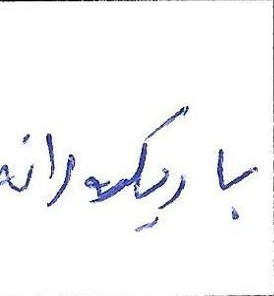 باریک دانہ